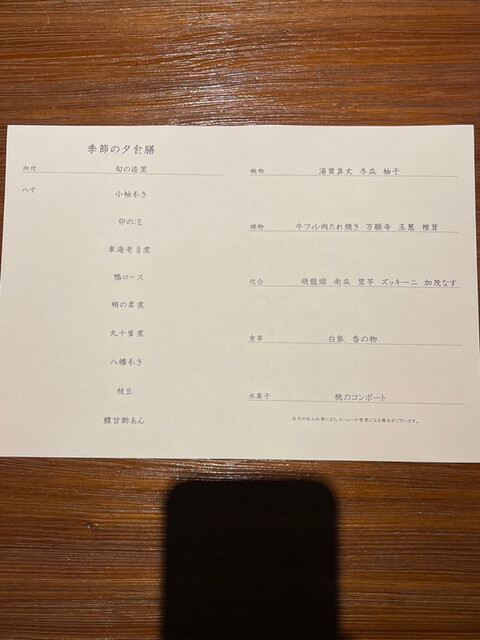 季節の夕食膳
向付 旬の造里
八寸 小袖寿き
卯の花
車海老旨煮
鴨ロース
蛸の柔煮
丸十蜜煮
八幡巻き
枝豆
鱧甘酢あん
椀物 湯葉真丈 冬瓜 柚子
焼物 牛フィレ肉たれ焼き 万願寺 玉葱 椎茸
炊合 飛龍頭 南瓜 里芋 ズッキーニ 加茂なす
食事 白飯 香の物
水菓子 桃のコンポート
当日の仕入れ等により、メニューが変更になる場合がございます。